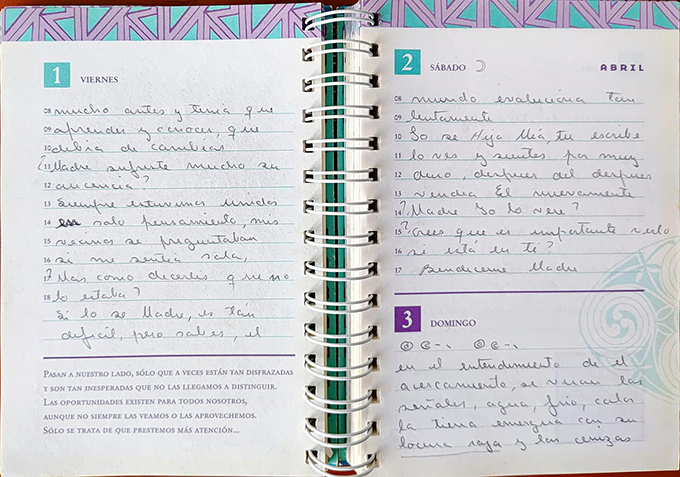 1 VIERNES
08 mucho antes y tenia que
09 aprender y conocer, que
10 debia de cambiar
11 ¿Madre sufriste mucho su
12 aucencia?
13 Siempre estuvimos unidos
14 en solo pensamiento, mis
15 vecinos se preguntaban
16 si me sentia sola,
17 ¿Mas como decerles que no
18 lo estaba?
Si lo se Madre, es tán
deficil, pero sabes, el
PASAN A NUESTRO LADO, SÓLO QUE A VECES ESTÁN TAN DISFRAZADAS
Y SON TAN INESPERADAS QUE NO LAS LLEGAMOS A DISTINGUIR.
LAS OPORTUNIDADES EXISTEN PARA TODOS NOSOTROS,
AUNQUE NO SIEMPRE LAS VEAMOS O LAS APROVECHEMOS.
SÓLO SE TRATA DE QUE PRESTEMOS MÁS ATENCIÓN...
2 SÁBADO ABRIL
08 mundo evoluciona tan
09 lentamente
10 Yo se Hija Mía, tu escribe
11 lo ves y sientes por muy
12 duro, despues del despues
13 vendra El nuevamente
14 ¿Madre Yo lo vere?
15 ¿Crees que es importante verlo
16 si está en ti?
17 Bendiceme Madre
3 DOMINGO
en el entendimiento de el
acercamiento, se veian las
señales, agua, frio, calor
la tierra emergia con su
locura roja y las cenizas